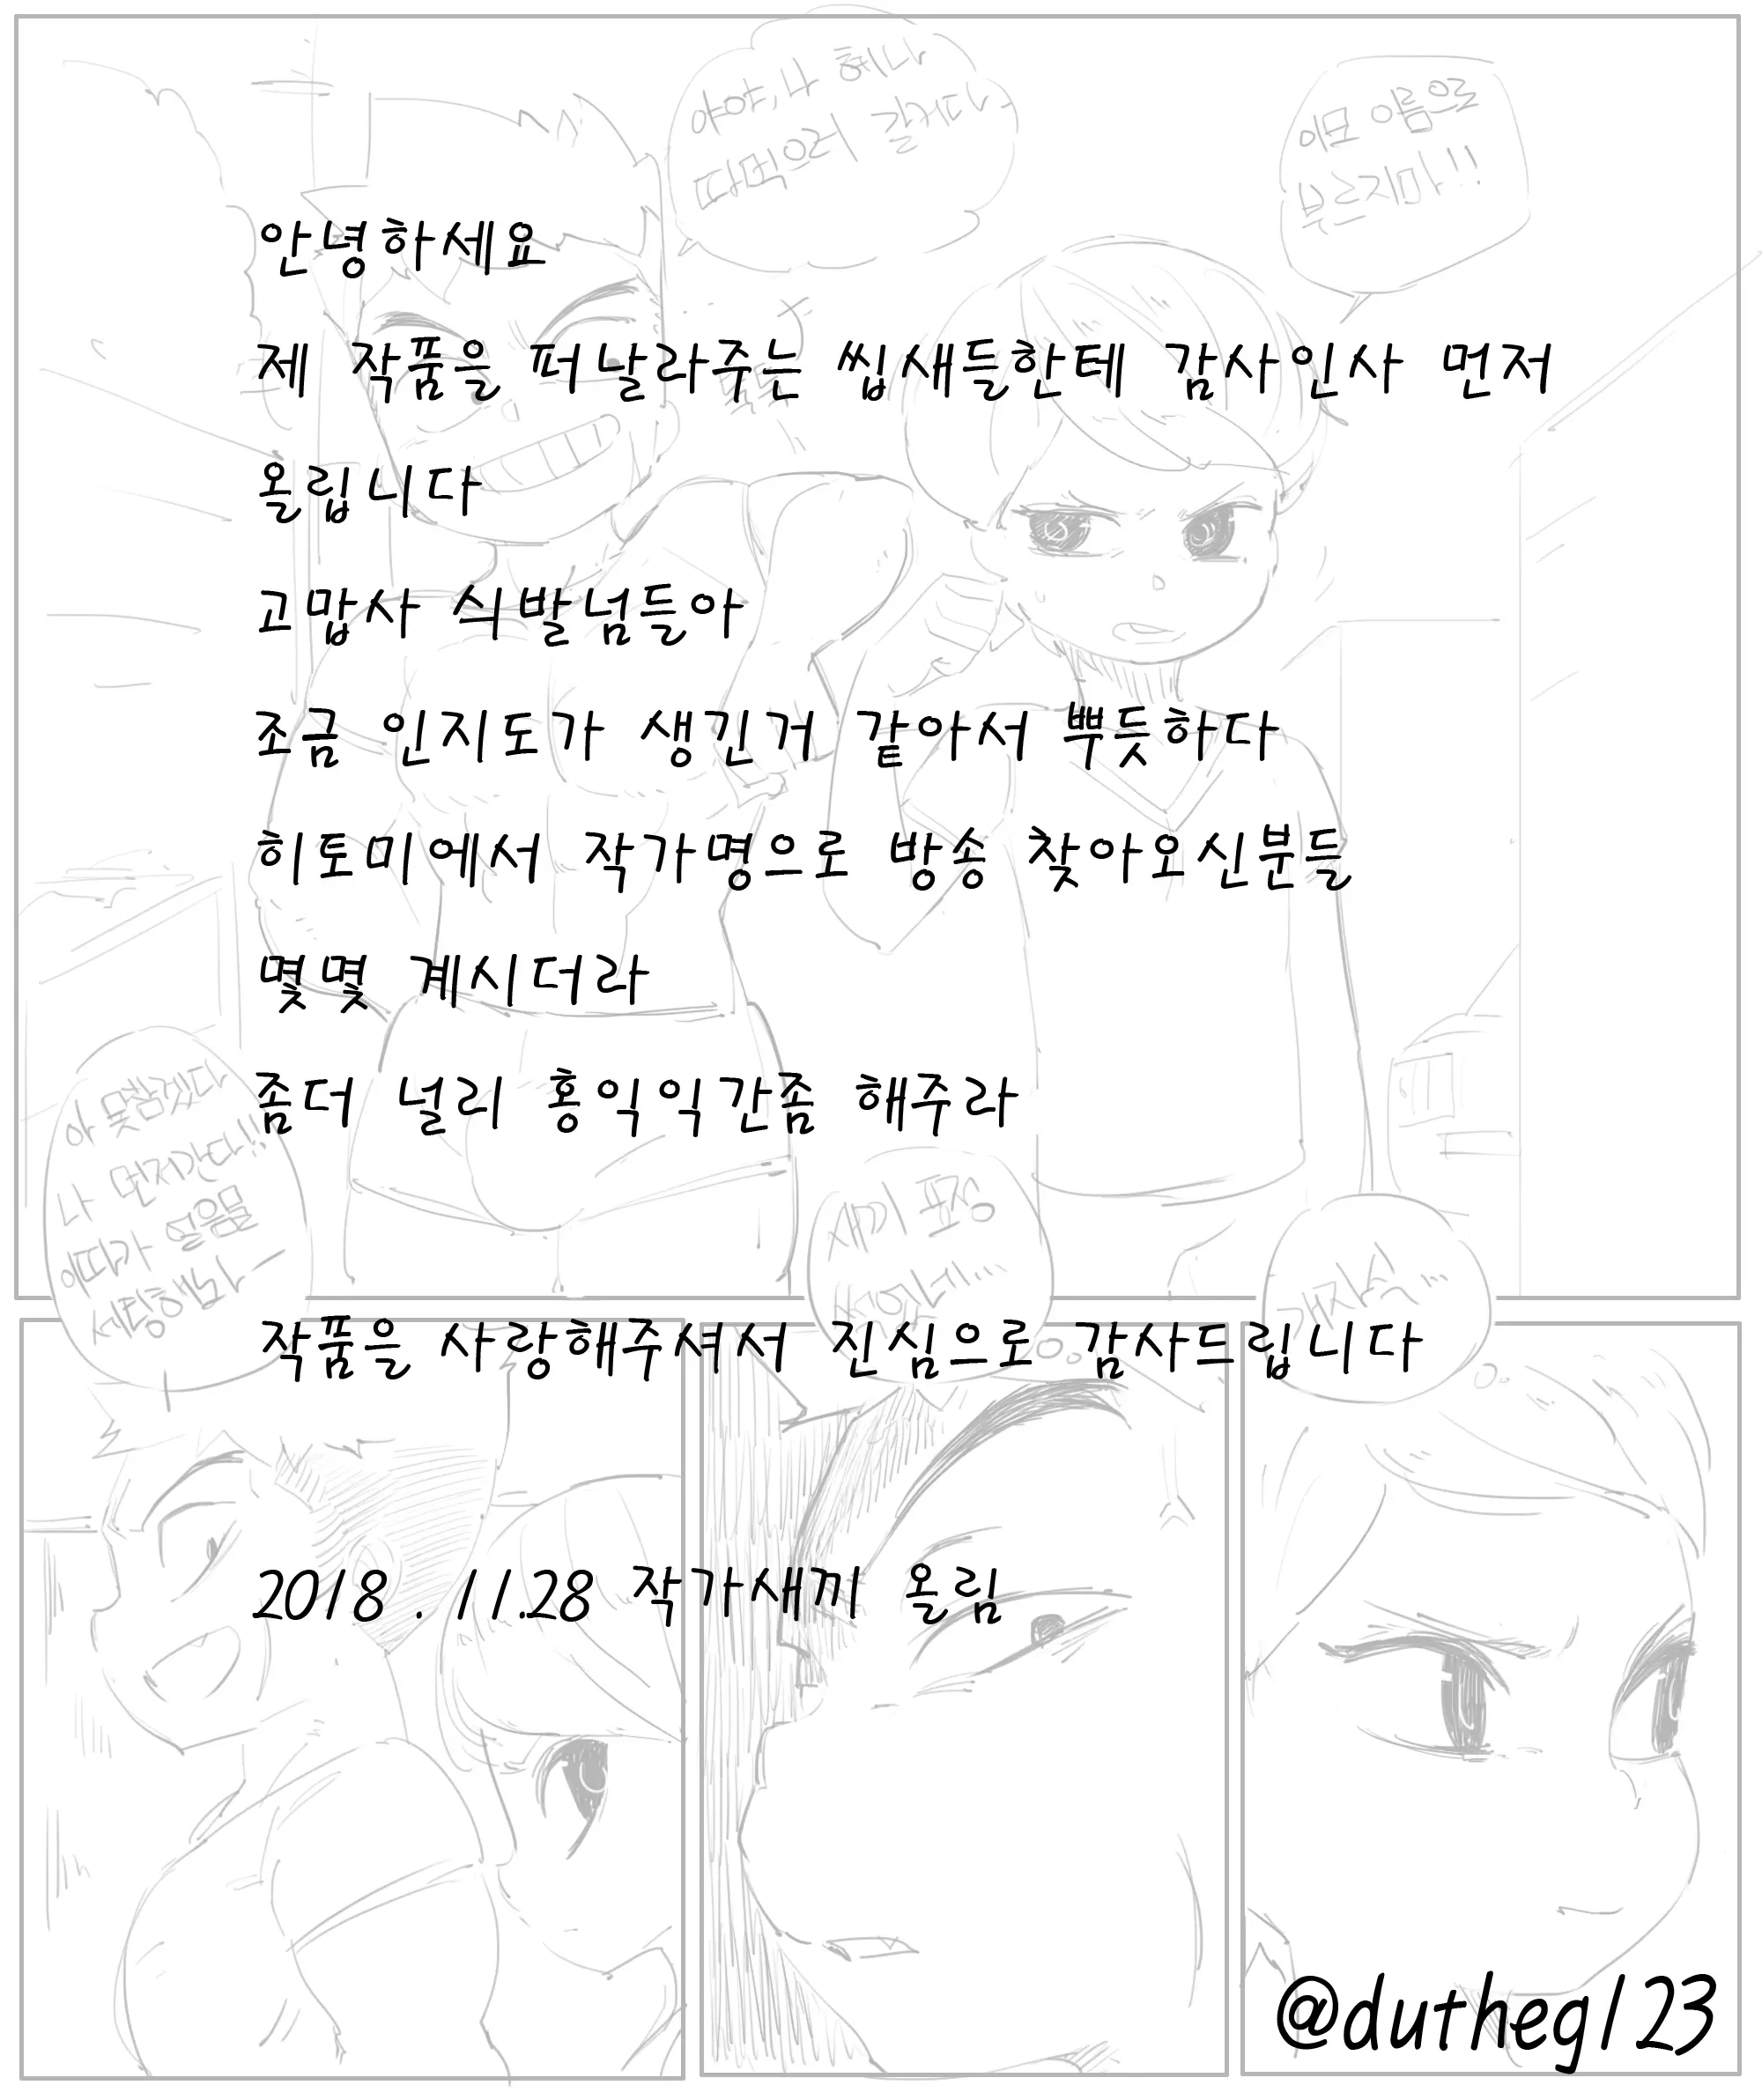 아야, 나 헤나
따먹으러 갈거다
이모 이름으로
부르지마!!
안녕하세요
제 작품을 퍼날라주는 씹새들한테 감사인사 먼저
올립니다
고맙사 싀발넘들아
조금 인지도가 생긴거 같아서 뿌듯하다
히토미에서 작가명으로 방송 찾아오신분들
몇몇 계시더라
좀더 널리 홍익익간좀 해주라
아 못참겠다
나 먼저간다!!
이따가 얼음물
세팅해놔
새끼 표정
개자식...
작품을 사랑해주셔서 진심으로 감사드립니다
2018 . 11.28 작가새끼 올림
@dutheg123